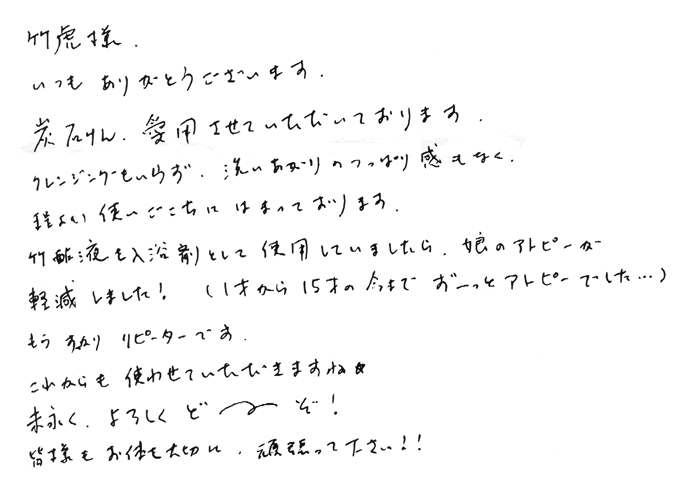 竹虎様.
いつも ありがとうございます.
炭石けん、愛用させていただいております.
クレンジングもいらず、洗いあがりのつっぱり感もなく、
程よい使いごこちにはまっております.
竹酢液を入浴剤として使用していましたら、娘のアトピーが
軽減しました! (1才から15才の今までずーっとアトピーでした…)
もうすっかりリピーターです.
これからも使わせていただきますね★
末永く、よろしくど〜ぞ!
皆様もお体を大切に、頑張って下さい!!